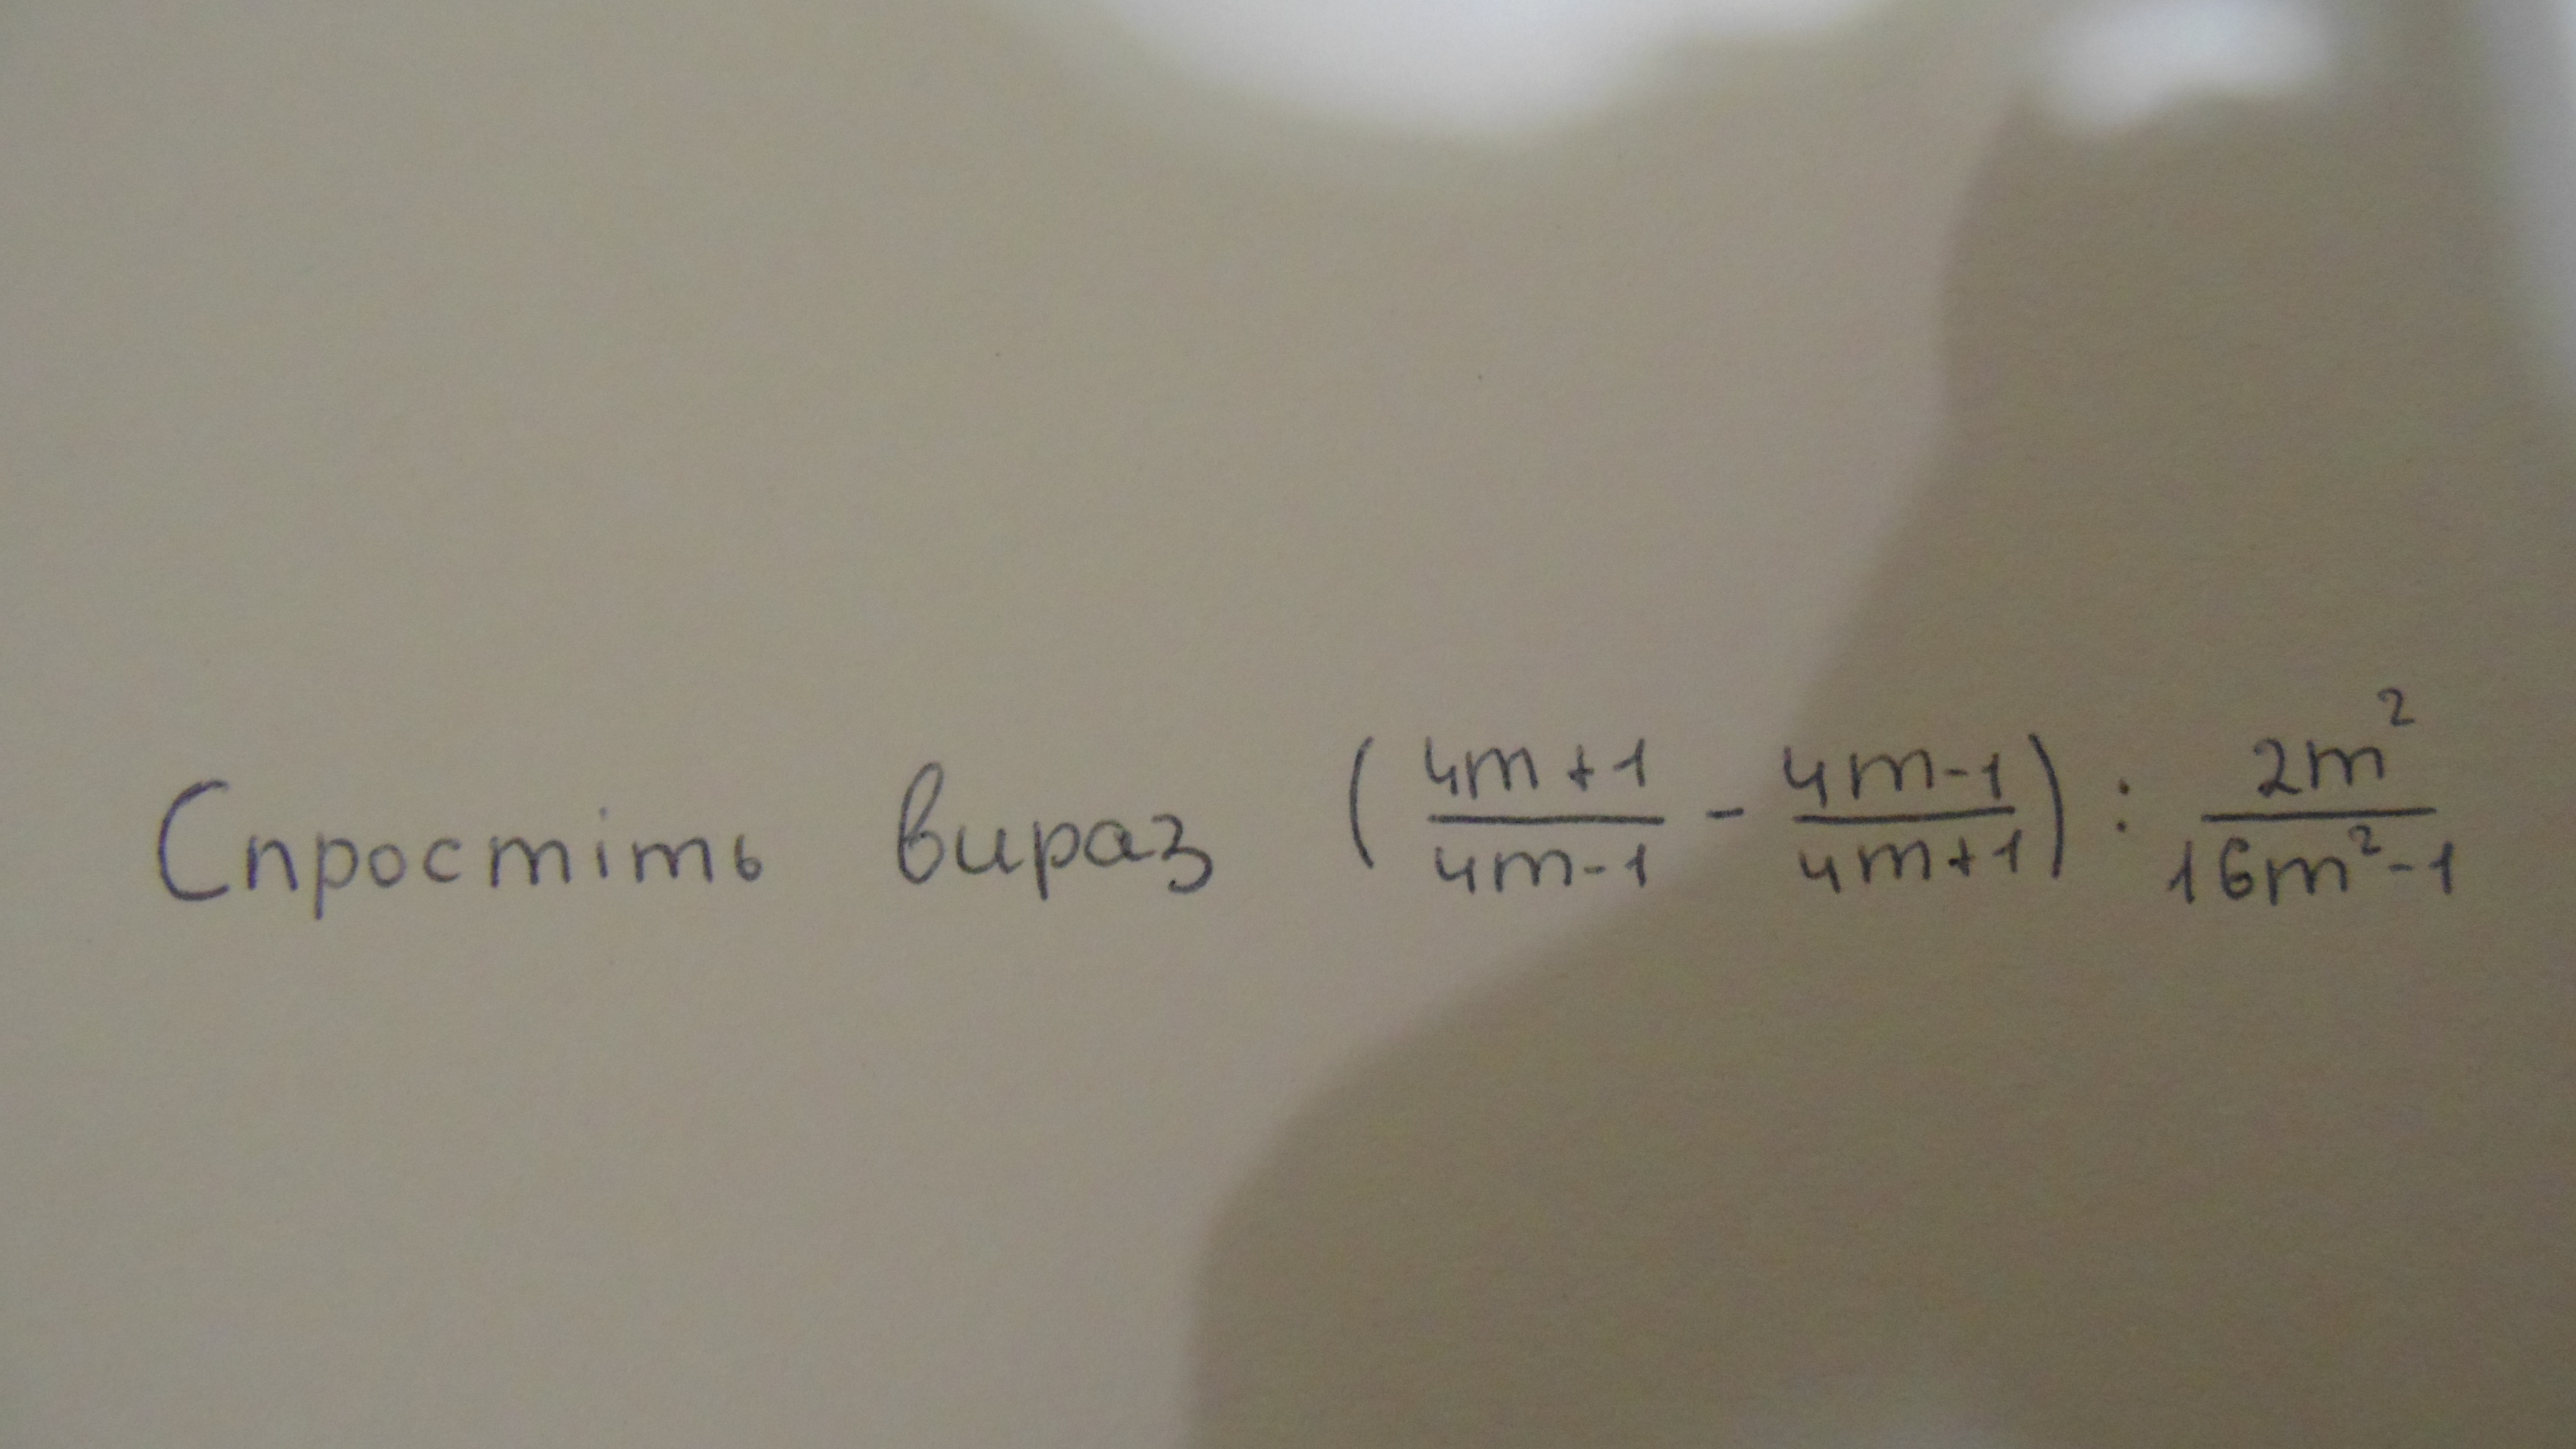 Спростіть вираз ( \frac{4m+1}{4m-1} - \frac{4m-1}{4m+1} ) : \frac{2m^2}{16m^2-1}